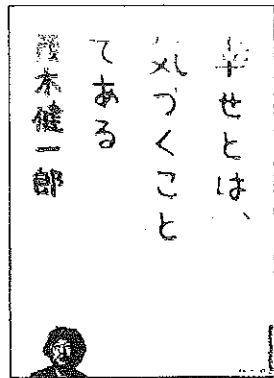 幸せとは、
気づくこと
である
茂木健一郎